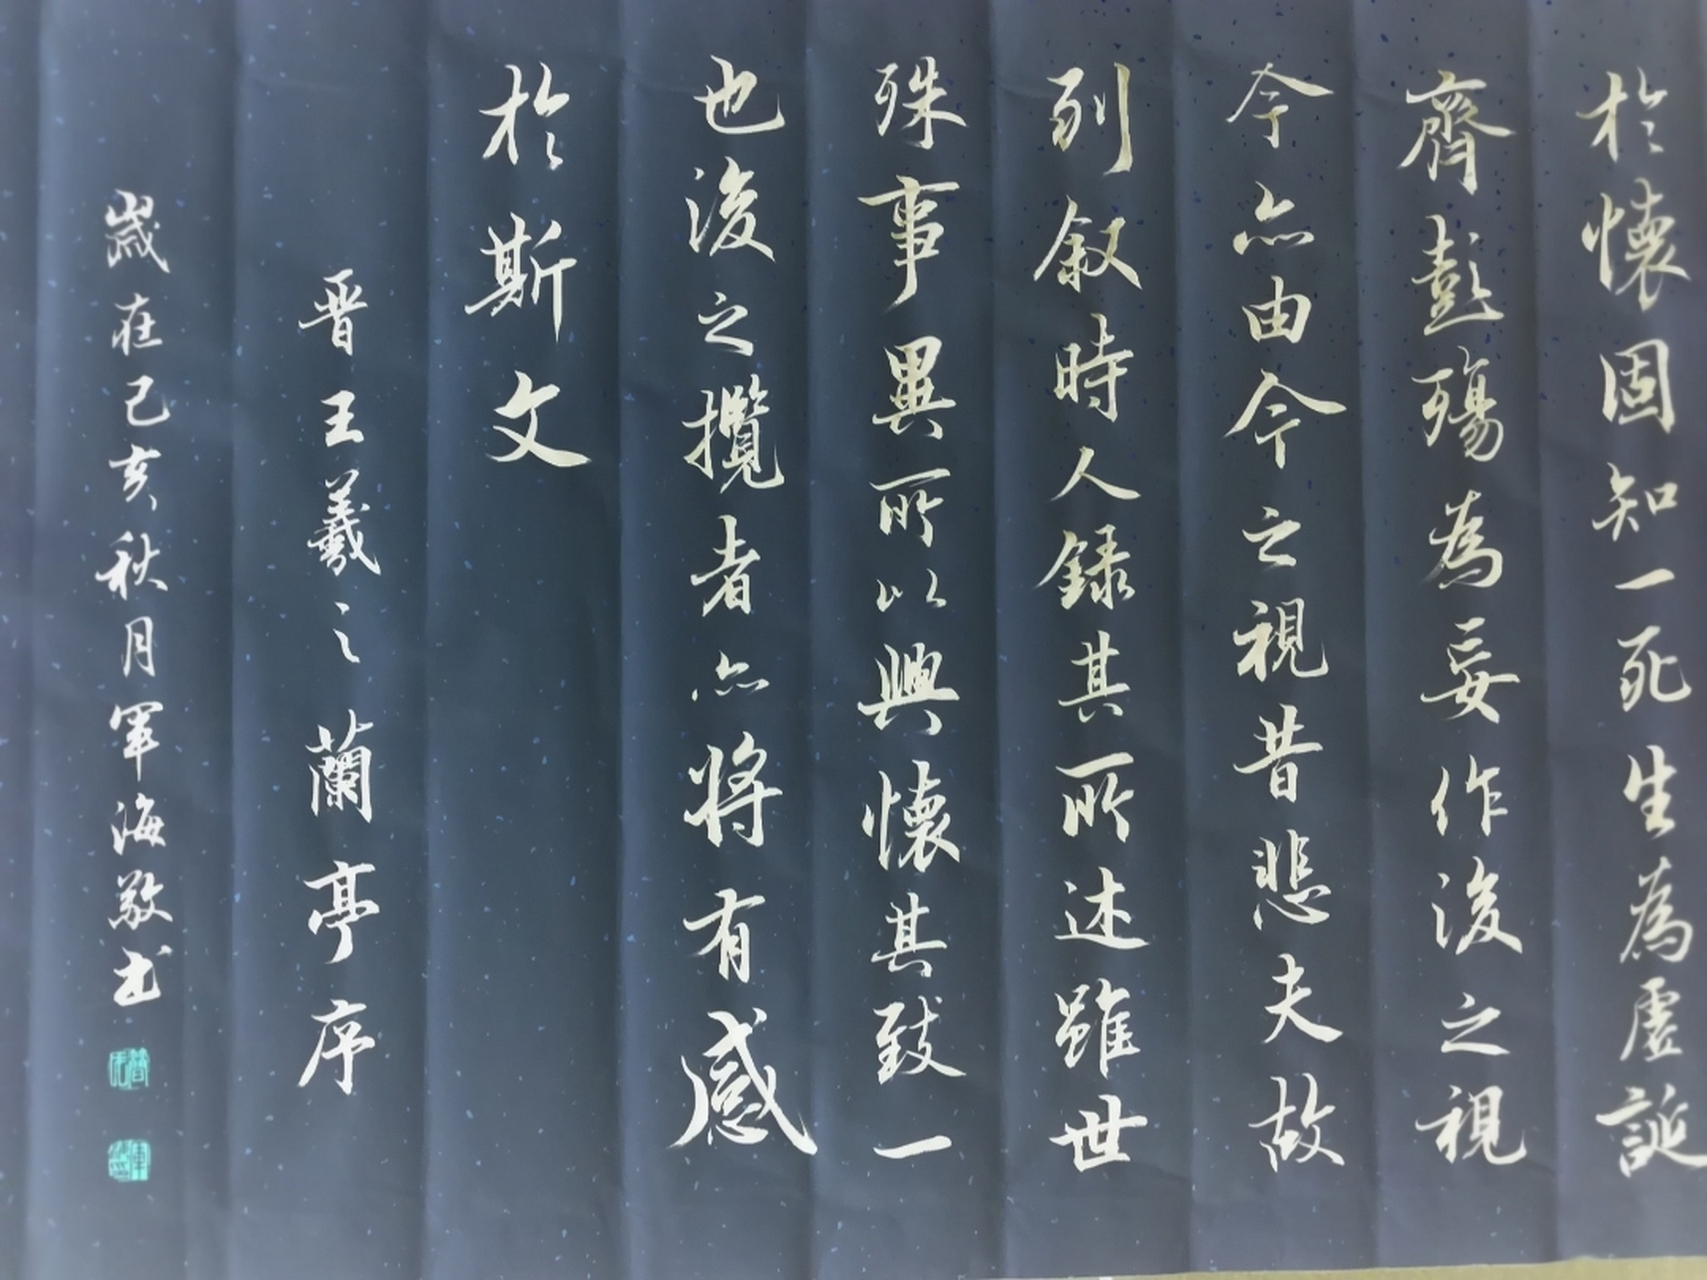 於懷固知一死生為虛誕
齊彭殤為妄作後之視
今亦由今之視昔悲夫故
列叙時人錄其所述雖世
殊事異所以興懷其致一
也後之攬者亦將有感
於斯文
晋王羲之蘭亭序
歲在己亥秋月軍海敬书